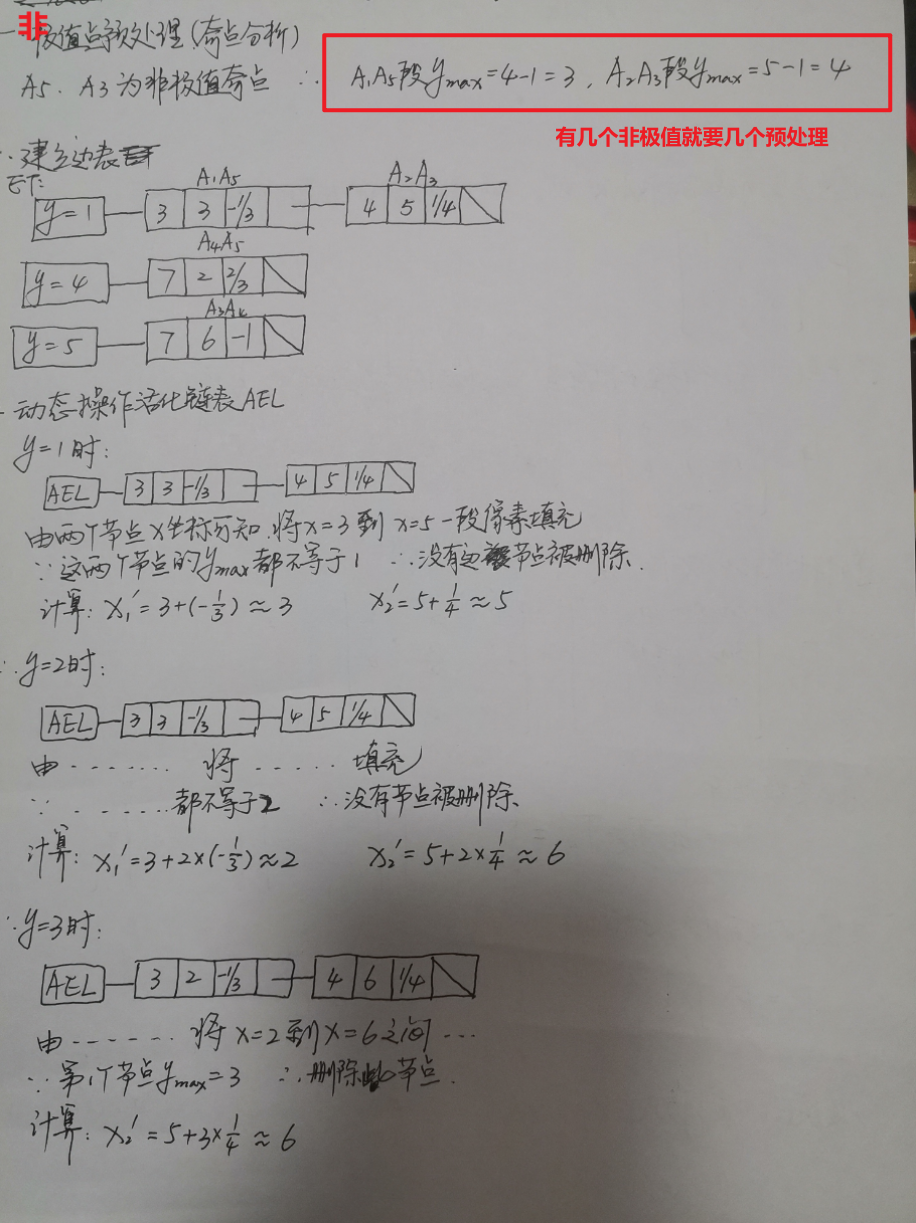 非
一 极值点预处理(奇点分析)
A5、A3为非极值奇点 ∴ A₁A₅段ymax=4-1=3, A₂A₃段ymax=5-1=4
有几个非极值就要几个预处理
建立边表
ET:
A₁A₅ A₂A₃
y=1 3 3 -1/3 4 5 1/4
A₄A₅
y=4 7 2 2/3
y=5 7 6 -1
动态操作活化链表AEL
y=1时:
AEL 3 3 -1/3 4 5 1/4
由两个节点x坐标可知.将x=3到x=5一段像素填充
∵这两个节点的ymax都不等于1 ∴没有节点被删除.
计算: x₁'=3+(-1/3)≈3 x₂'=5+1/4≈5
y=2时:
AEL 3 3 -1/3 4 5 1/4
由 ....... 将 ..... 填充
∵ ...... 都不等于2 ∴没有节点被删除.
计算: x₁'=3+2×(-1/3)≈2 x₂'=5+2×1/4≈6
y=3时:
AEL 3 2 -1/3 4 6 1/4
由 ...... 将x=2到x=6之间 ...
∵第1个节点ymax=3 ∴删除此节点.
计算: x₂'=5+3×1/4≈6